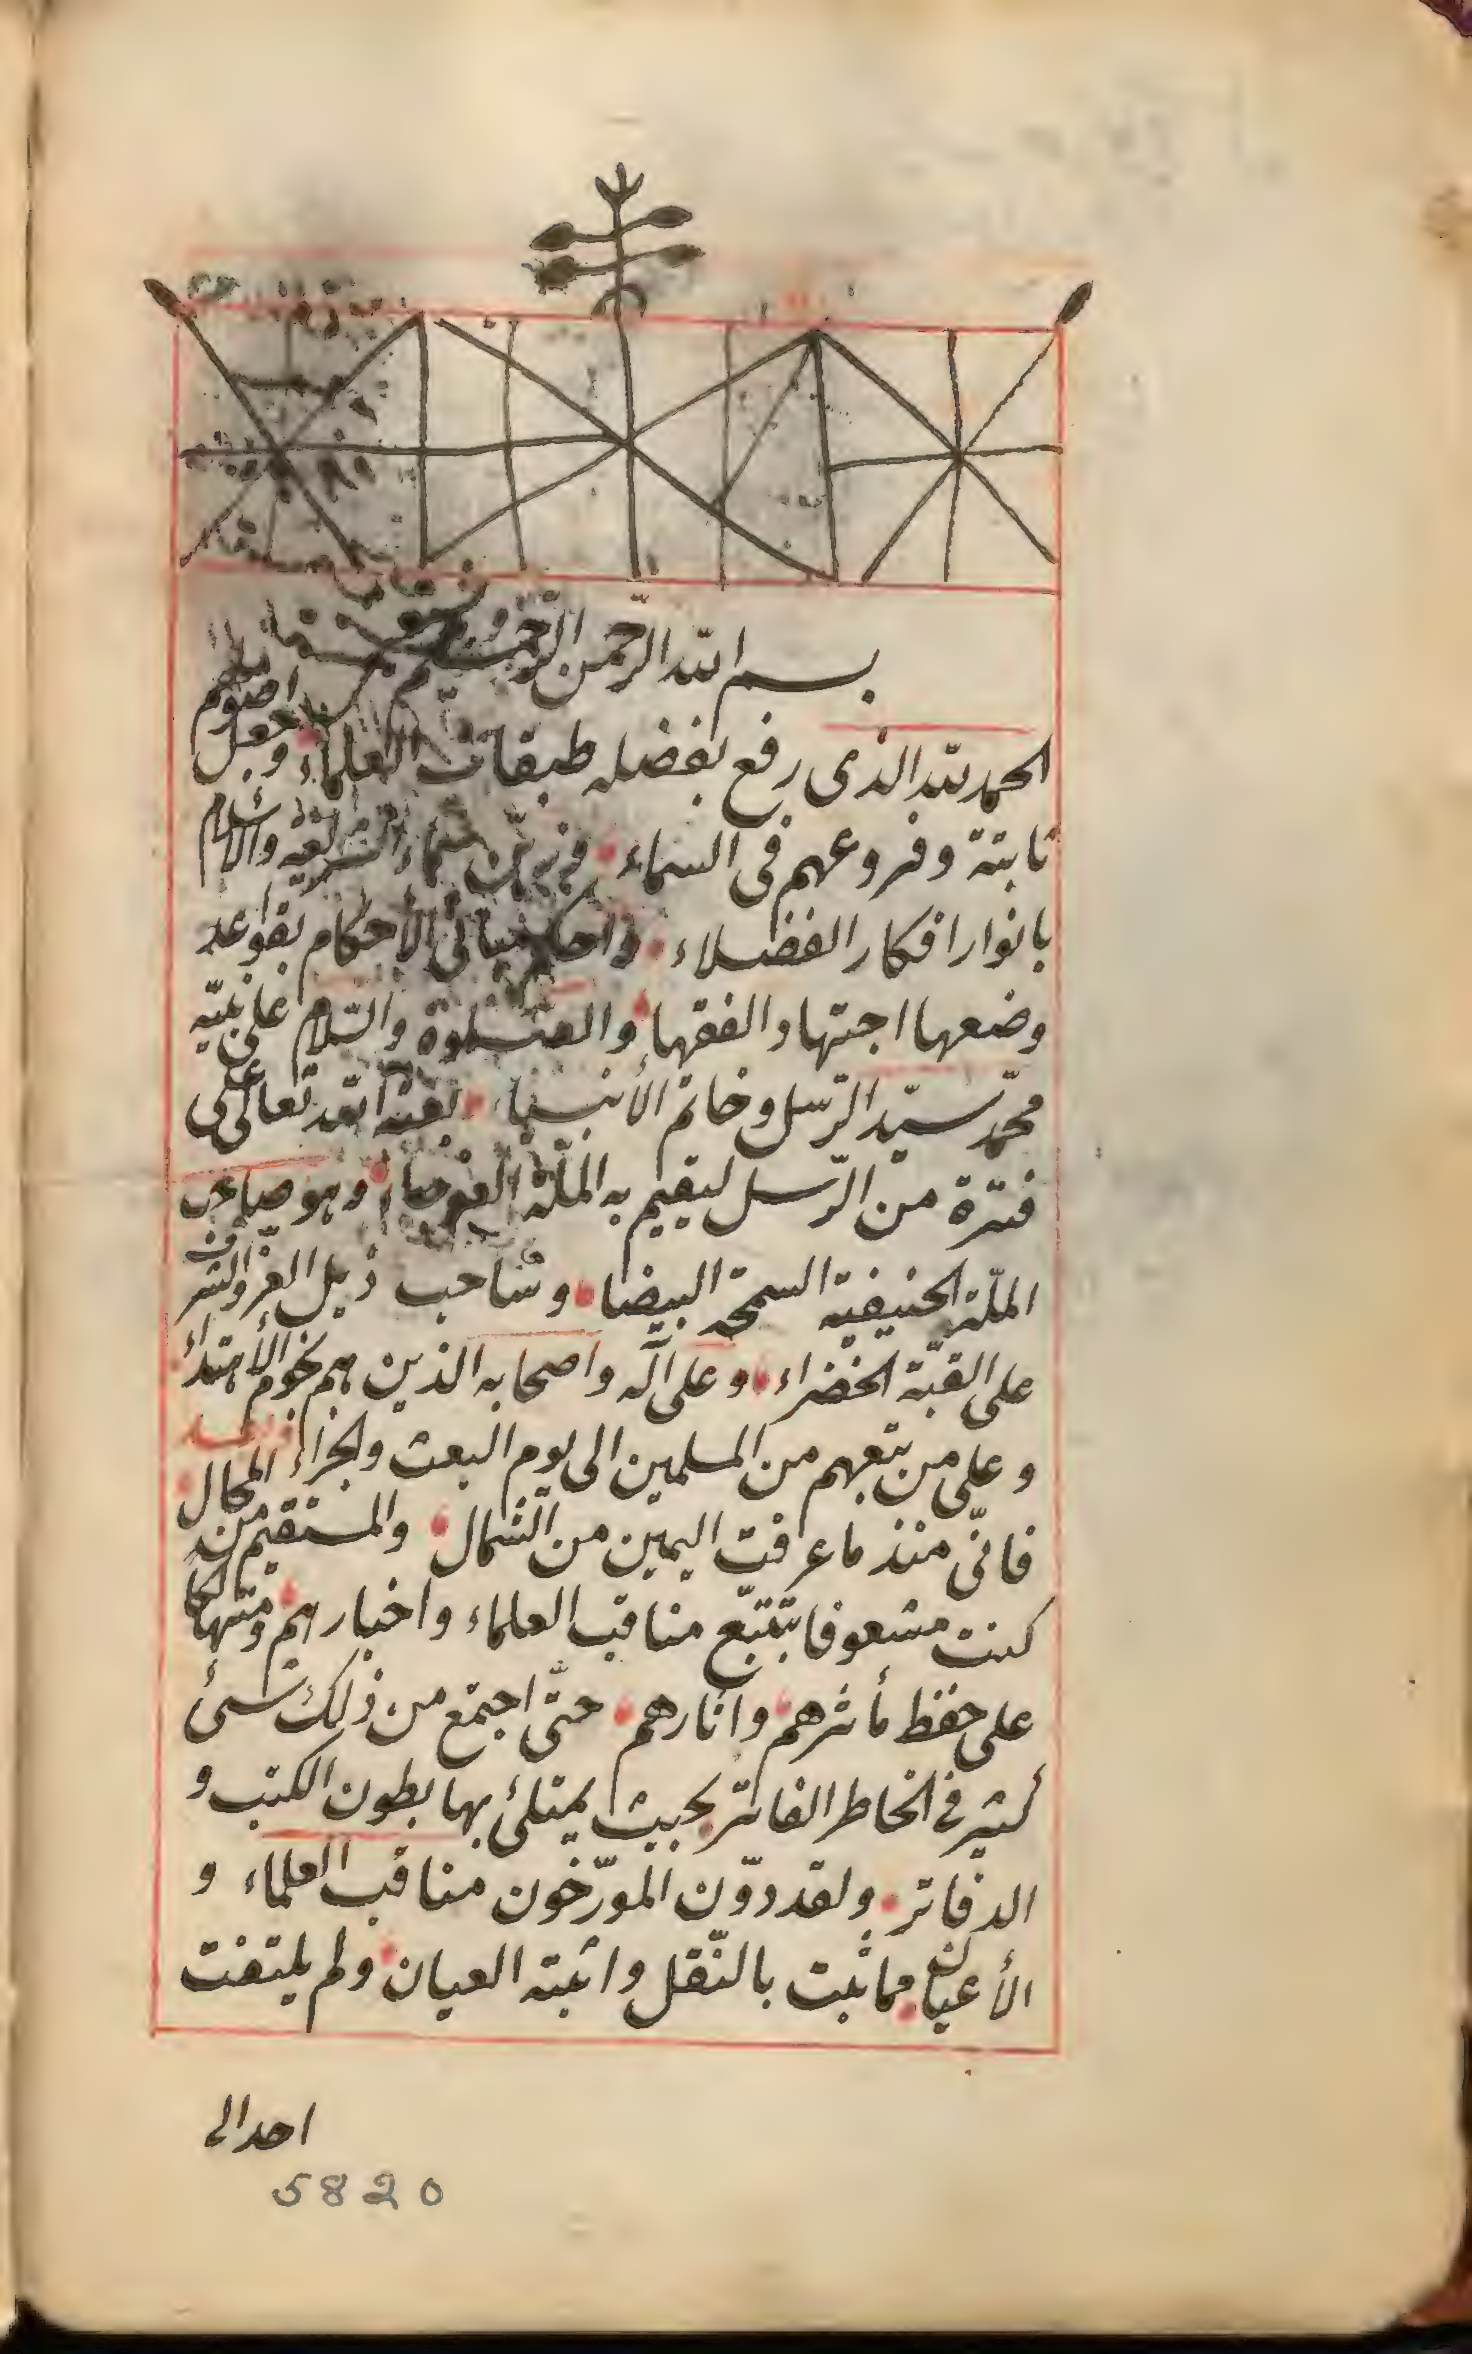 بسم الله الرحمن الرحيم
الحمد لله الذى رفع بفضله طبقات العلماء وجعل اصولهم
ثابتة وفروعهم فى السماء فزين سماء الشريعة والاسلام
بانوار افكار الفضلاء واحكم مبانى الأحكام بقواعد
وضعها اجتهاد الفقها والصلوة والسّلام على نبيّه
محمّد سيّد الرّسل وخاتم الأنبيا بعثه الله تعالى على
فترة من الرّسل ليقيم به الملّة العوجا وهو صاحب
الملّة الحنيفية السمحة البيضا وساحب ذيل العزّ والشرف
على القبّة الخضراء وعلى آله واصحابه الذين هم نجوم الأهتداء
وعلى من تبعهم من المسلمين الى يوم البعث والجزاء وبعد
فانّى منذ ما عرفت اليمين من الشّمال والمستقيم من المحال
كنت مشعوفا بتتبّع مناقب العلماء واخبارهم ومتهالكا
على حفظ مأثرهم واثارهم حتّى اجتمع من ذلك شئ
كثير فى الخاطر الفاتر بحيث يمتلئ بها بطون الكتب و
الدفاتر ولقد دوّن المورّخون مناقب العلماء و
الأعيان مما ثبت بالنّقل واثبته العيان ولم يلتفت
احد الى
5820